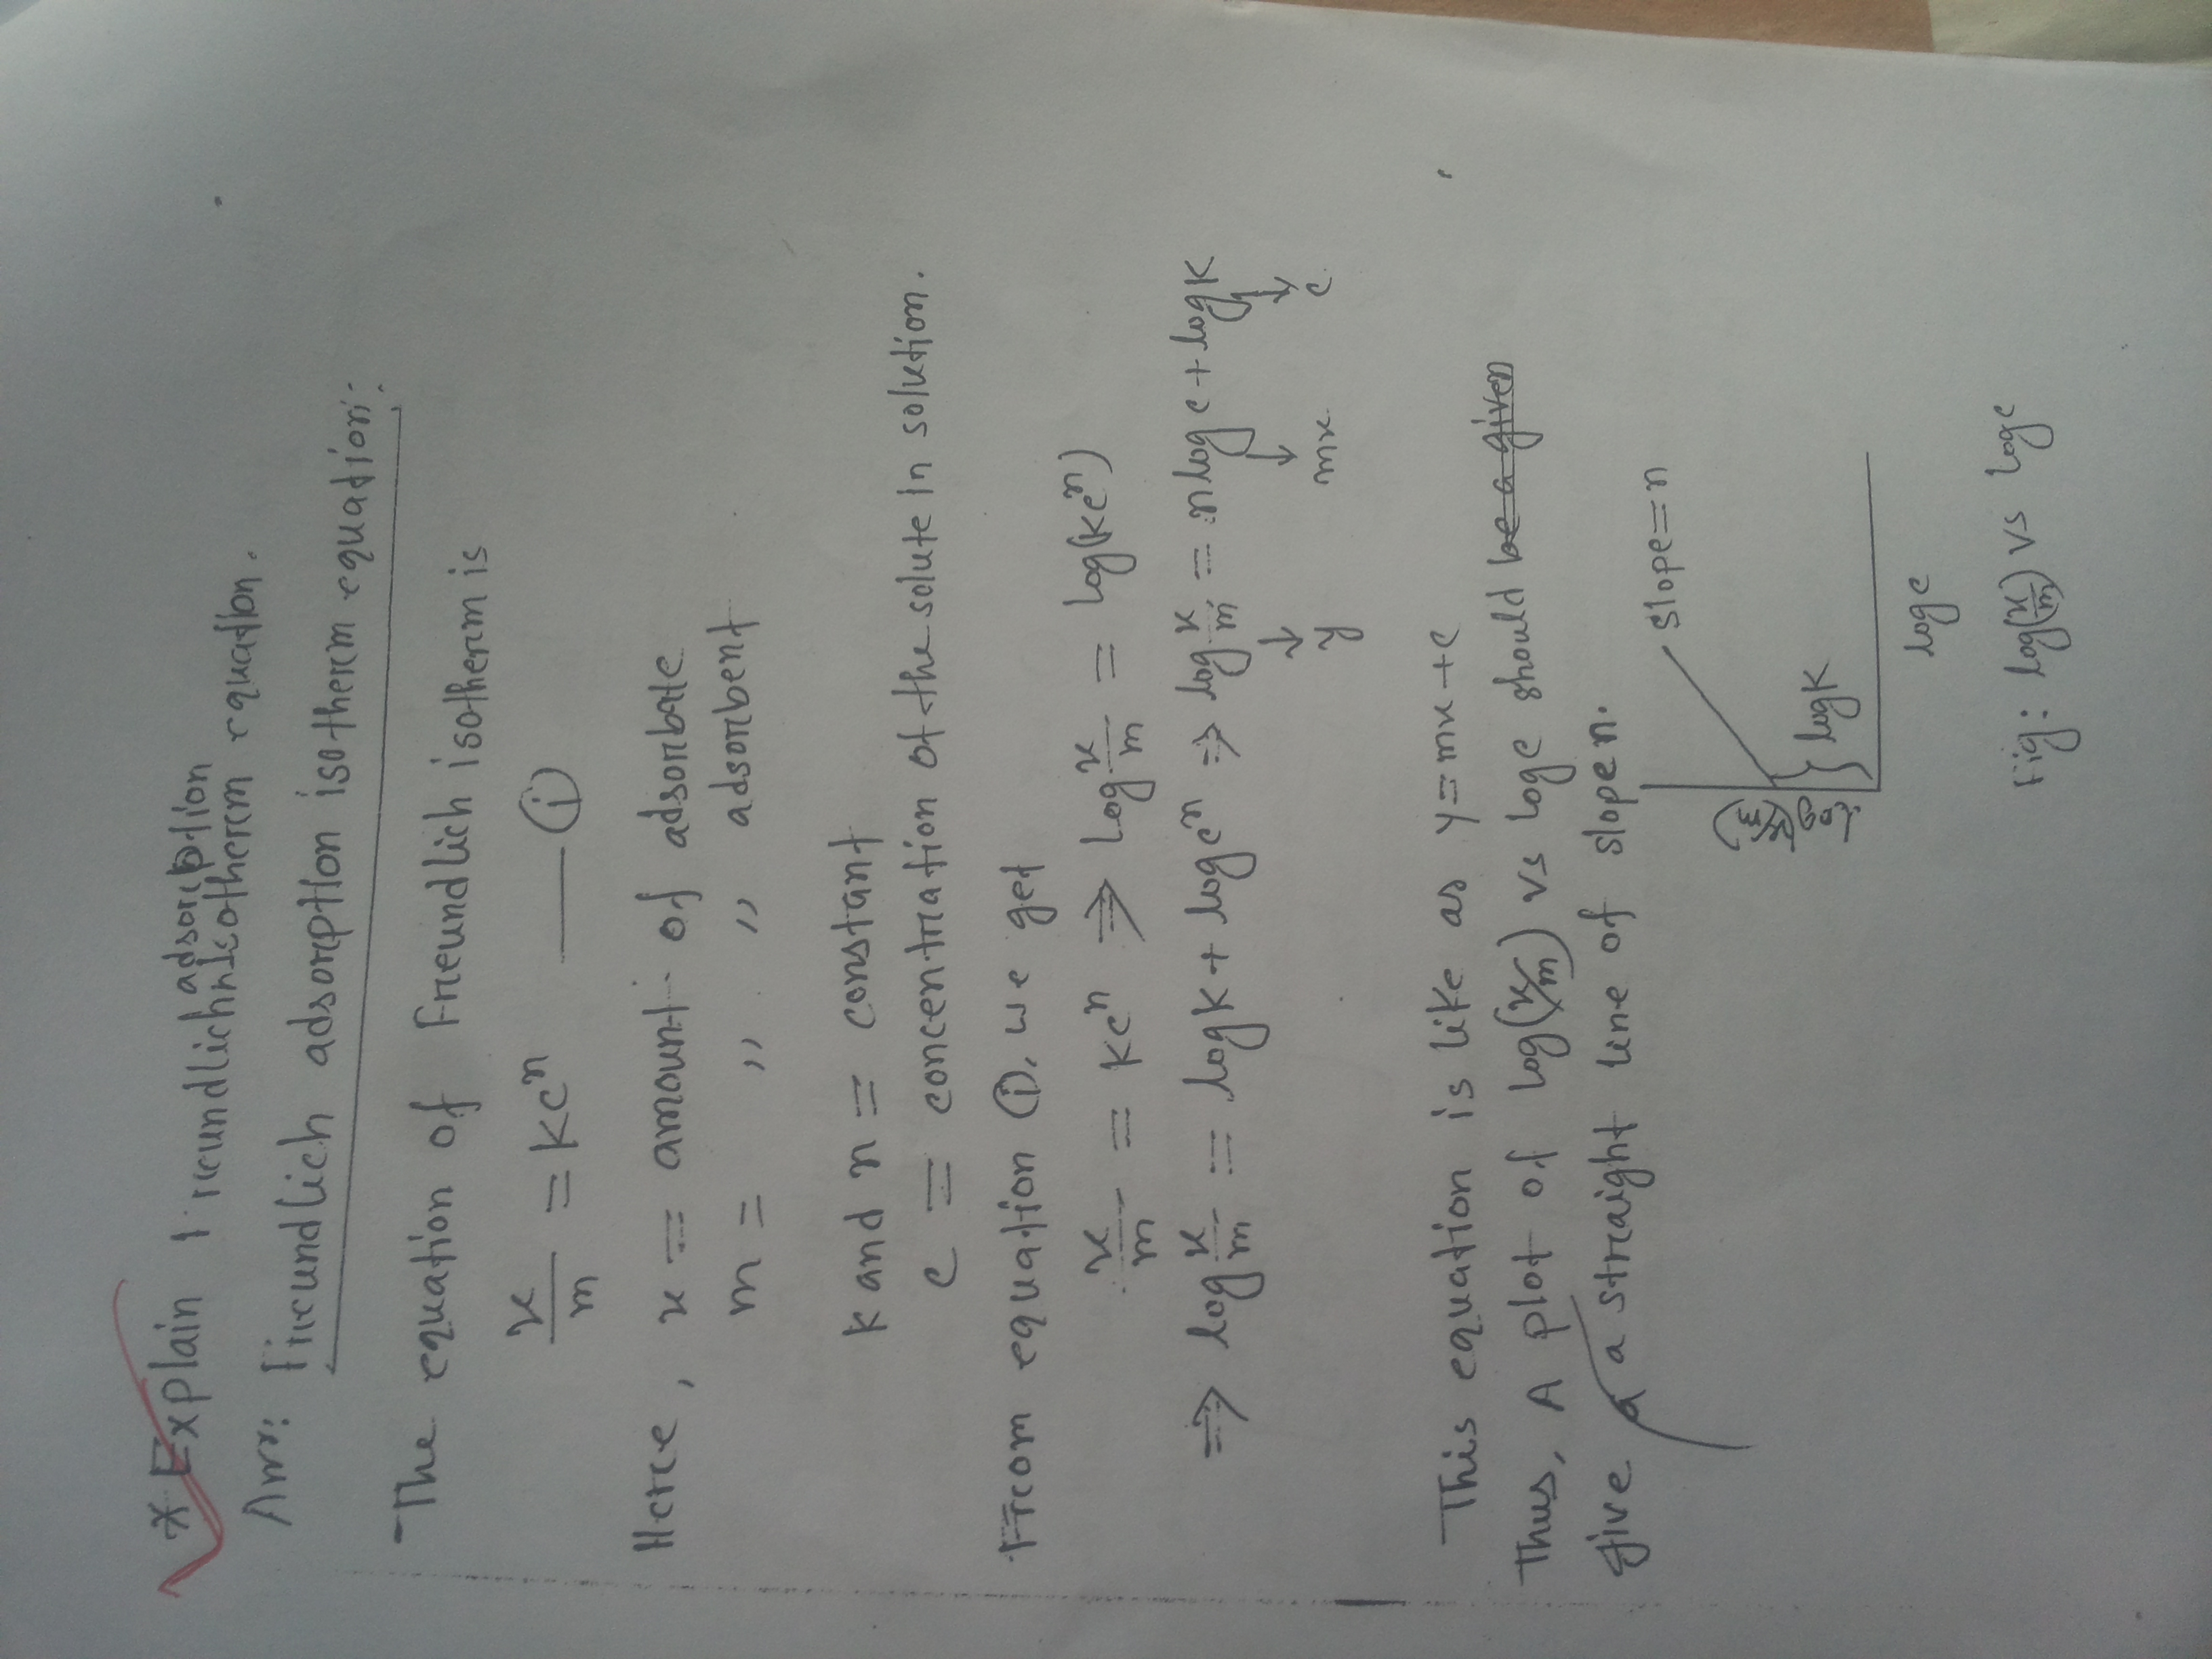 * Explain Freundlich adsorption isotherm equation.
Ans: Freundlich adsorption isotherm equation:
The equation of Freundlich isotherm is
x/m = Kcⁿ —— (i)
Here, x = amount of adsorbate
m = " " adsorbent
K and n = constant
c = concentration of the solute in solution.
From equation (i), we get
x/m = Kcⁿ ⇒ log x/m = log(Kcⁿ)
⇒ log x/m = logK + logcⁿ ⇒ log x/m = nlogc + logK
↓ ↓ ↓
y mx c
This equation is like as y = mx + c
Thus, A plot of log(x/m) vs logc should be a given
give a a straight line of slope n.
slope = n
log(x/m)
logK
logc
Fig: log(x/m) vs logc